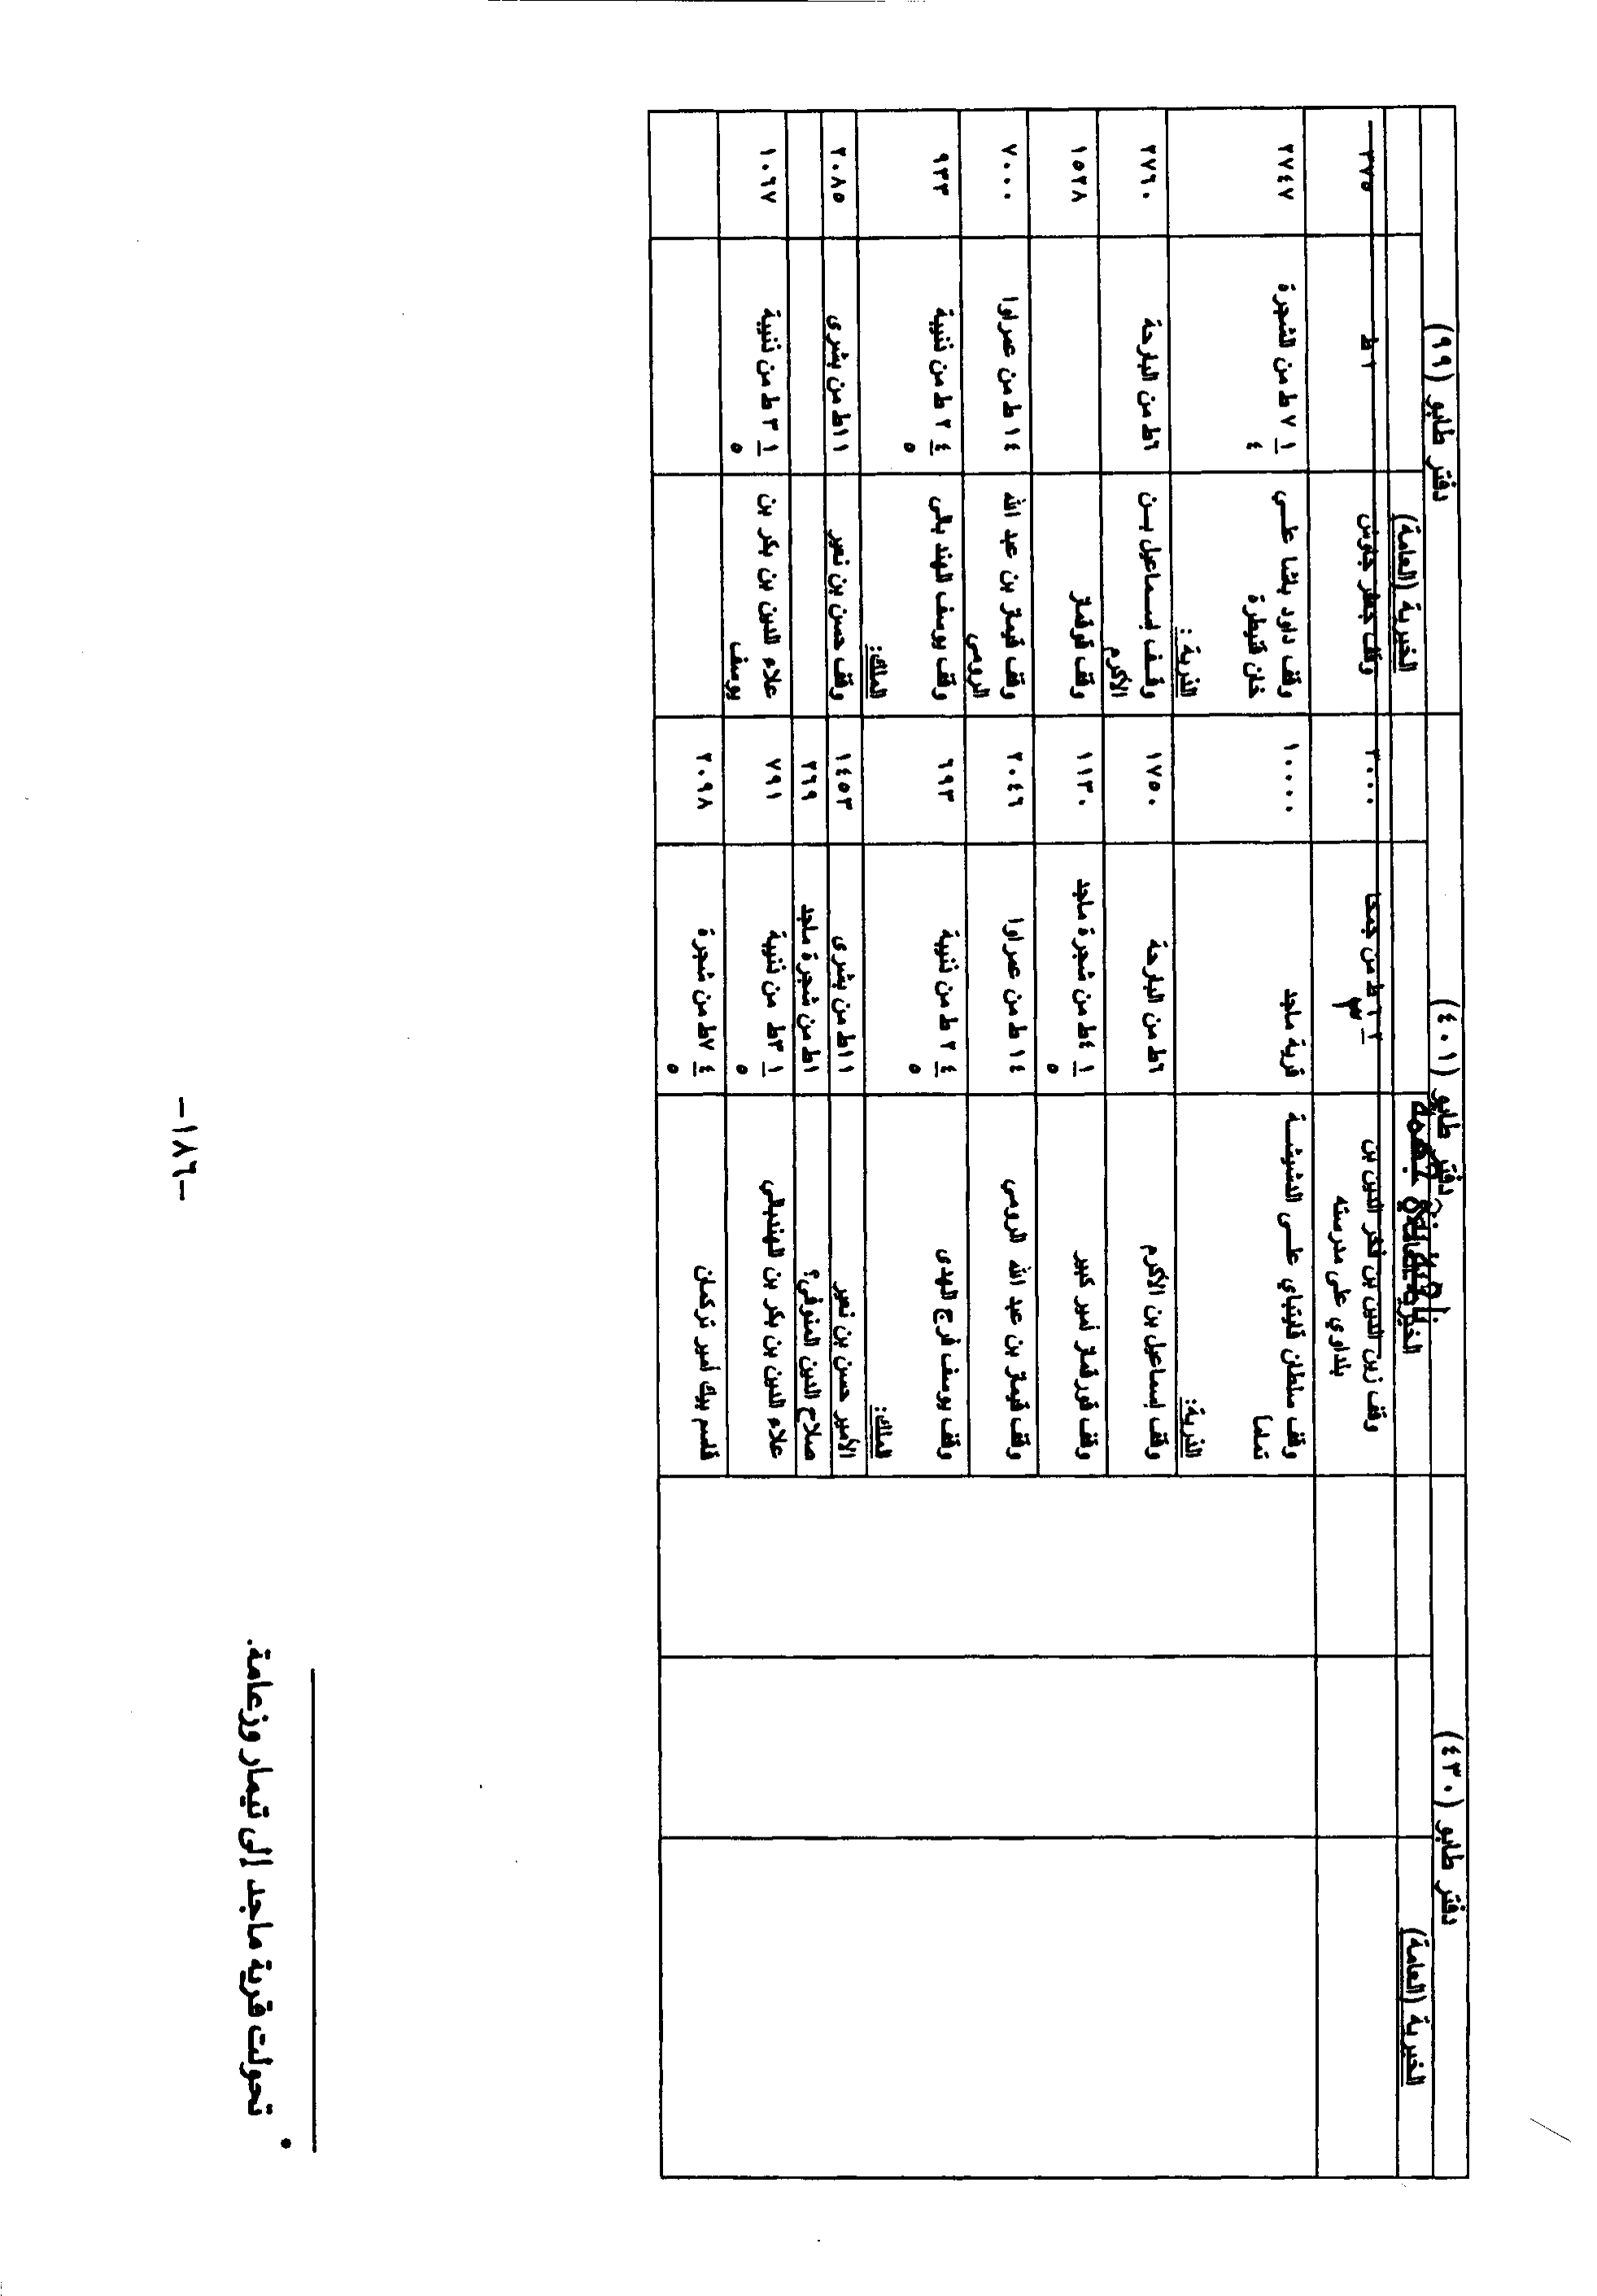 دفتر طابو (٤٣٠)
دفتر طابو (٤٠١)
دفتر طابو (٩٩)
الخيرية (العامة)
الخيرية (العامة)
وقف زين الدين بن فخر الدين بن
بنداوي على مدرسته
ط من جمحا
وقف جعفر جاوش
وقف سلطان قايتباي على الدشيشة
تماما
قرية ماجد
١٠٠٠٠
وقف داود باشا على
خان قنيطرة
١ ٧ ط من الشجرة
٤
٢٧٤٧
الذرية:
الذرية:
وقف إسماعيل بن الأكرم
٦ط من البارحة
١٧٥٠
وقف إسماعيل بن
الأكرم
٦ط من البارحة
٢٧٦٠
وقف قورقماز أمير كبير
١ ٤ط من شجرة ماجد
٥
١١٣٠
وقف قوقماز
١٥٢٨
وقف قيماز بن عبد الله الرومي
١٤ ط من عمراوا
٢٠٤٦
وقف قيماز بن عبد الله
الرومي
١٤ ط من عمراوا
٧٠٠٠
وقف يوسف فرج الهدى
٤ ٢ ط من ننيبة
٥
٦٩٣
وقف يوسف الهند بالى
٤ ٢ ط من ننيبة
٥
٩٣٣
الملك:
الملك:
الأمير حسن بن نعير
١١ط من بشرى
١٤٥٣
وقف حسن بن نعير
١١ط من بشرى
٢٠٨٥
صلاح الدين المنوفي؟
١ط من شجرة ماجد
٢٦٩
علاء الدين بن بكر بن الهندبالي
١ ٣ط من ننيبة
٥
٧٩١
علاء الدين بن بكر بن
يوسف
١ ٣ ط من ننيبة
٥
١٠٦٧
قاسم بيك أمير تركمان
٤ ٧ط من شجرة
٥
٢٠٩٨
• تحولت قرية ماجد إلى تيمار وزعامة.
-١٨٦-